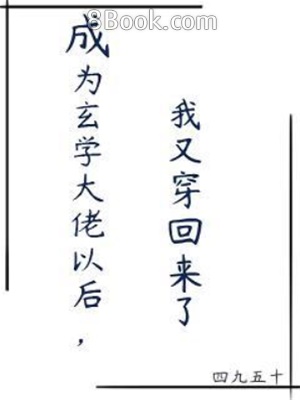 8Book.com
成为玄学大佬以后，
我又穿回来了
四九五十